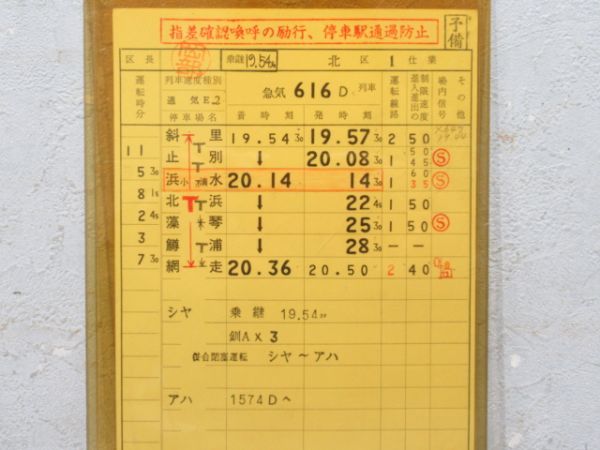 指差確認喚呼の励行、停車駅通過防止
予備
区長 乗継19.54 北区 1
運転時分 列車速度種別 急気 616D 列車 運転線路 制限速度 進入進出 場内信号 その他
通気E2
停車場名 着時刻 発時刻
斜里 19.54 30 19.57 30 2 50
11
止別 ↓ 20.08 30 1 50 45 Ⓢ
5 30
浜小清水 20.14 14 30 1 60 35
8 15
北浜 ↓ 22 45 1 50
2 45
藻琴 ↓ 25 30 1 50 Ⓢ
3
鱒浦 ↓ 28 30 — —
7 30
網走 20.36 20.50 2 40
シヤ 乗継 19.54
釧A×3
併合閉塞運転 シヤ〜アハ
アハ 1574Dへ